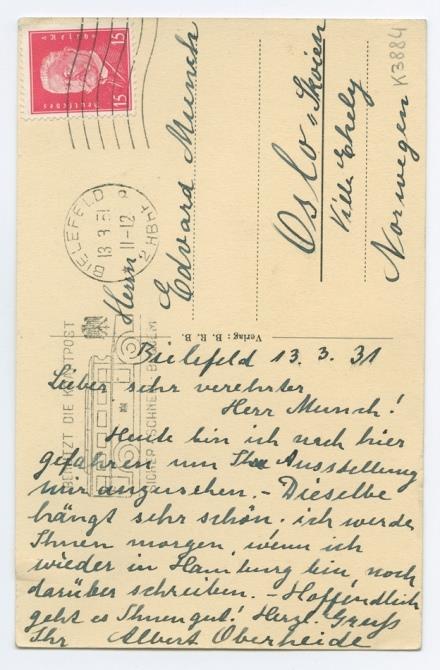 K3884
15 Deutsches Reich 15
BIELEFELD 2 HBHF
13.3.31
11-12
BENUTZT DIE KRAFTPOST
SICHER SCHNELL BEQUEM
Herrn
Edvard Munch
Oslo - Skøien
Villa Ekely
Norwegen
Verlag: B. R. B.
Bielefeld 13.3.31
Lieber sehr verehrter
Herr Munch!
Heute bin ich nach hier
gefahren um Ihre Ausstellung
mir anzusehen. - Dieselbe
hängt sehr schön. ich werde
Ihnen morgen, wenn ich
wieder in Hamburg bin, noch
darüber schreiben. - Hoffendlich
geht es Ihnen gut! Herzl. Gruss
Ihr Albert Oberheide